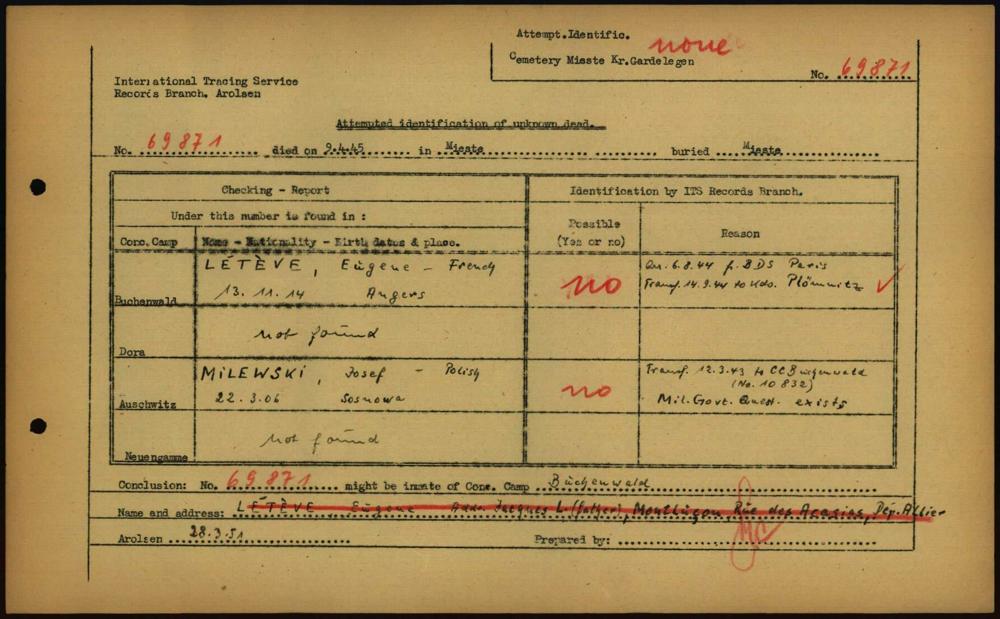 Attempt.Identific.
none
Cemetery Mieste Kr.Gardelegen
No. 69871
International Tracing Service
Records Branch, Arolsen
Attempted identification of unknown dead.
No. 69871 died on 9.4.45 in Mieste buried Mieste
Checking - Report
Identification by ITS Records Branch.
Under this number is found in :
Possible
(Yes or no)
Reason
Conc. Camp
Name - Nationality - Birth dates & place.
LÉTÈVE, Eugene - French
13. 11. 14 Angers
Buchenwald
no
6.8.44 f. BDS Paris
Transf. 14.9.44 to Kdo. Plömnitz
not found
Dora
MILEWSKI, Josef - Polish
22. 3. 06 Sosnowa
Auschwitz
no
Transf. 12.3.43 to CC Buchenwald
(No. 10832)
Mil. Govt. Quest. exists
not found
Neuengamme
Conclusion: No. 69871 might be inmate of Conc. Camp Buchenwald
Name and address: LÉTÈVE Eugene Addr. Jacques L. (father), Montluçon, Rue des Acacias, Dep. Allier
Arolsen 28.3.51
Prepared by: